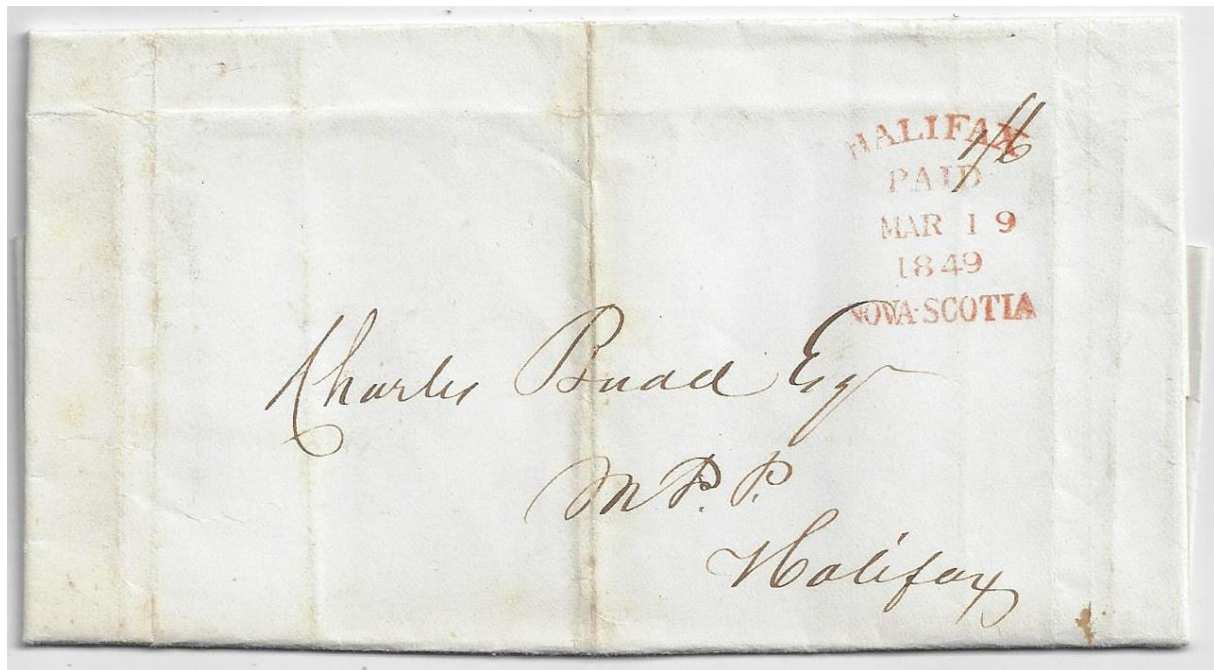 HALIFAX
PAID
MAR 19
1849
NOVA-SCOTIA
1/6
Charles Budd Esqr
M.P.P.
Halifax